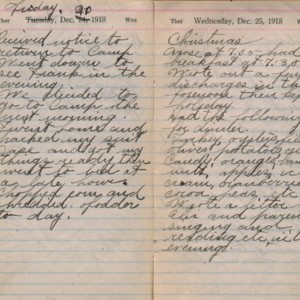 Friday. 20
Tuesday, Dec. 24, 1918
received notice to
return to Camp
Went down to
see Frank in the
evening.
decided to
go to Camp the
next morning.
I went home and
packed my suit
case and got my
things ready then
went to bed at
a late hour.
and
shredded fodder
to day.
Wednesday, Dec. 25, 1918
Christmas
Arose at 7.00 had
breakfast at 7:30
Wrote out a few
discharges in the
forenoon then
Had the following
for dinner.
Turkey, oysters,
olives, potatoes,
Candy, oranges,
nuts, apples,
cream, cranberry
cocoa,
Wrote a letter
and prayer
singing and
reading etc. in
evening.